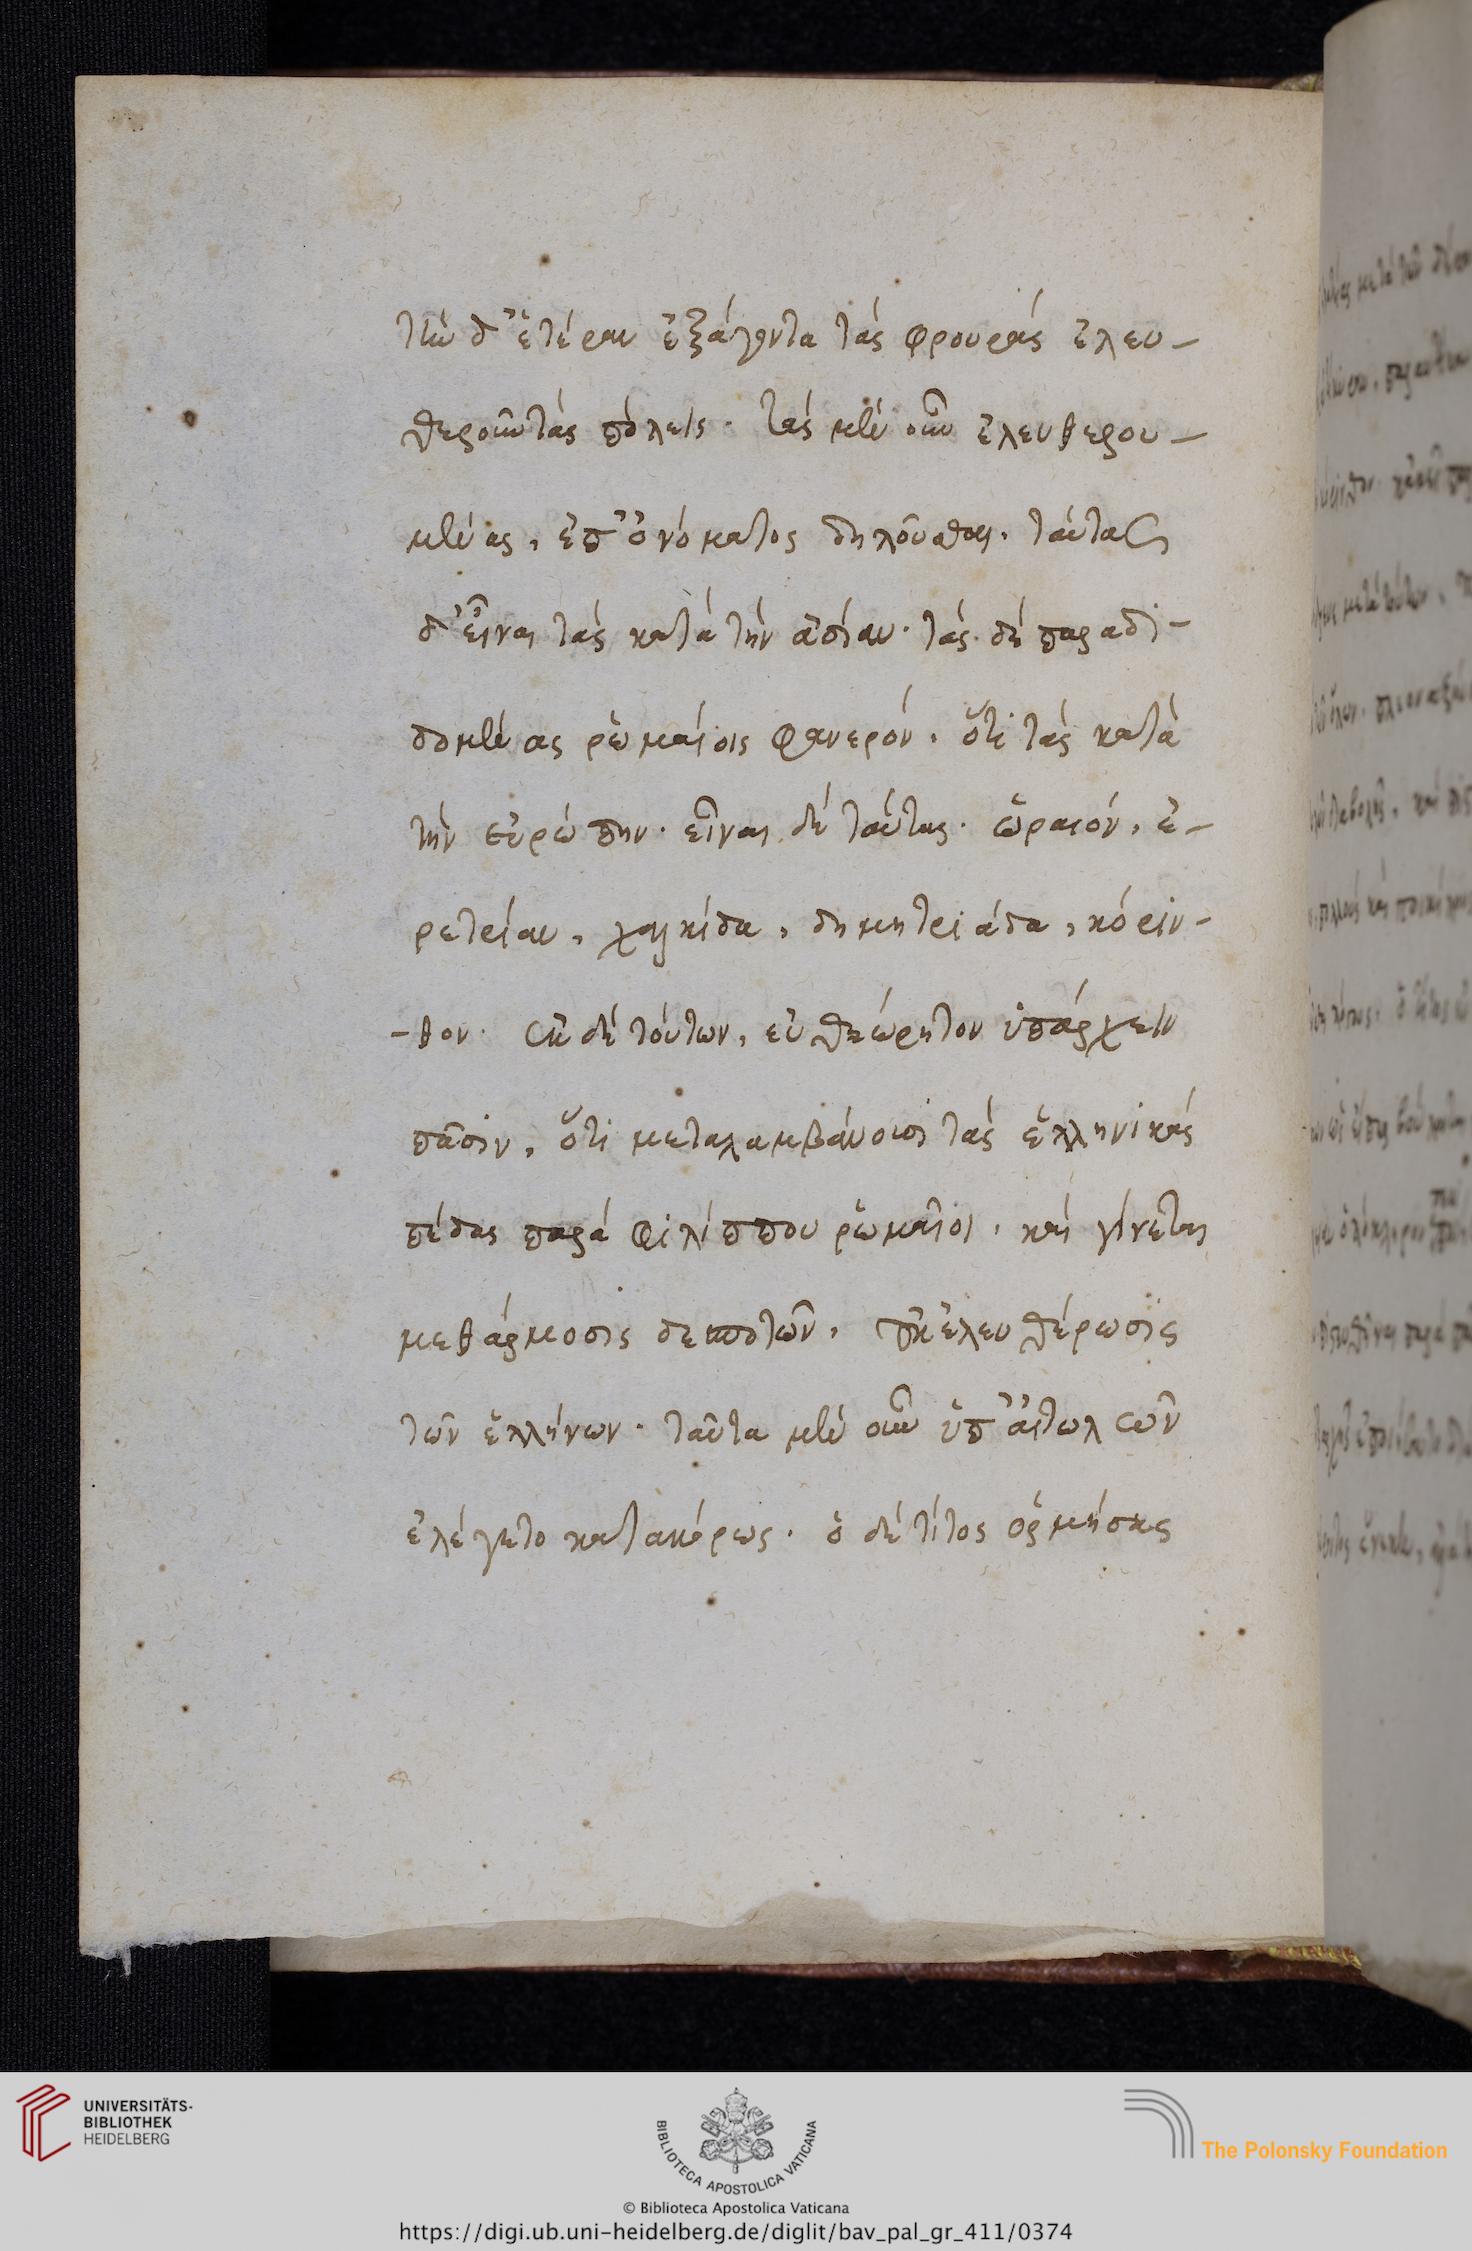 τὴν δ' ἑτέραν ἐξάγοντα τὰς φρουρὰς ἐλευ-
θεροῦν τὰς πόλεις. τὰς μὲν οὖν ἐλευθερου-
μένας, ἐπ' ὀνόματος δηλοῦσθαι. ταύτας
δ' εἶναι τὰς κατὰ τὴν ἀσίαν. τὰς δὲ παραδι-
δομένας ῥωμαίοις φανερόν. ὅτι τὰς κατὰ
τὴν εὐρώπην. εἶναι δὲ ταύτας. ὠραιόν, ἐ-
ρετρίαν, χαλκίδα, δημητριάδα, κόριν-
-θον. ἐκ δὲ τούτων, εὐθεώρητον ὑπάρχειν
πᾶσιν, ὅτι μεταλαμβάνουσι τὰς ἑλληνικὰς
πέδας παρὰ φιλίππου ῥωμαῖοι. καὶ γίνεται
μεθάρμοσις δεσποτῶν, οὐκ ἐλευθέρωσις
τῶν ἑλλήνων. ταῦτα μὲν οὖν ὑπ' αἰτωλῶν
ἐλέγετο κατακόρως. ὁ δὲ τίτος ὁρμήσας
UNIVERSITÄTS-
BIBLIOTHEK
HEIDELBERG
BIBLIOTECA APOSTOLICA VATICANA
The Polonsky Foundation
© Biblioteca Apostolica Vaticana
https://digi.ub.uni-heidelberg.de/diglit/bav_pal_gr_411/0374